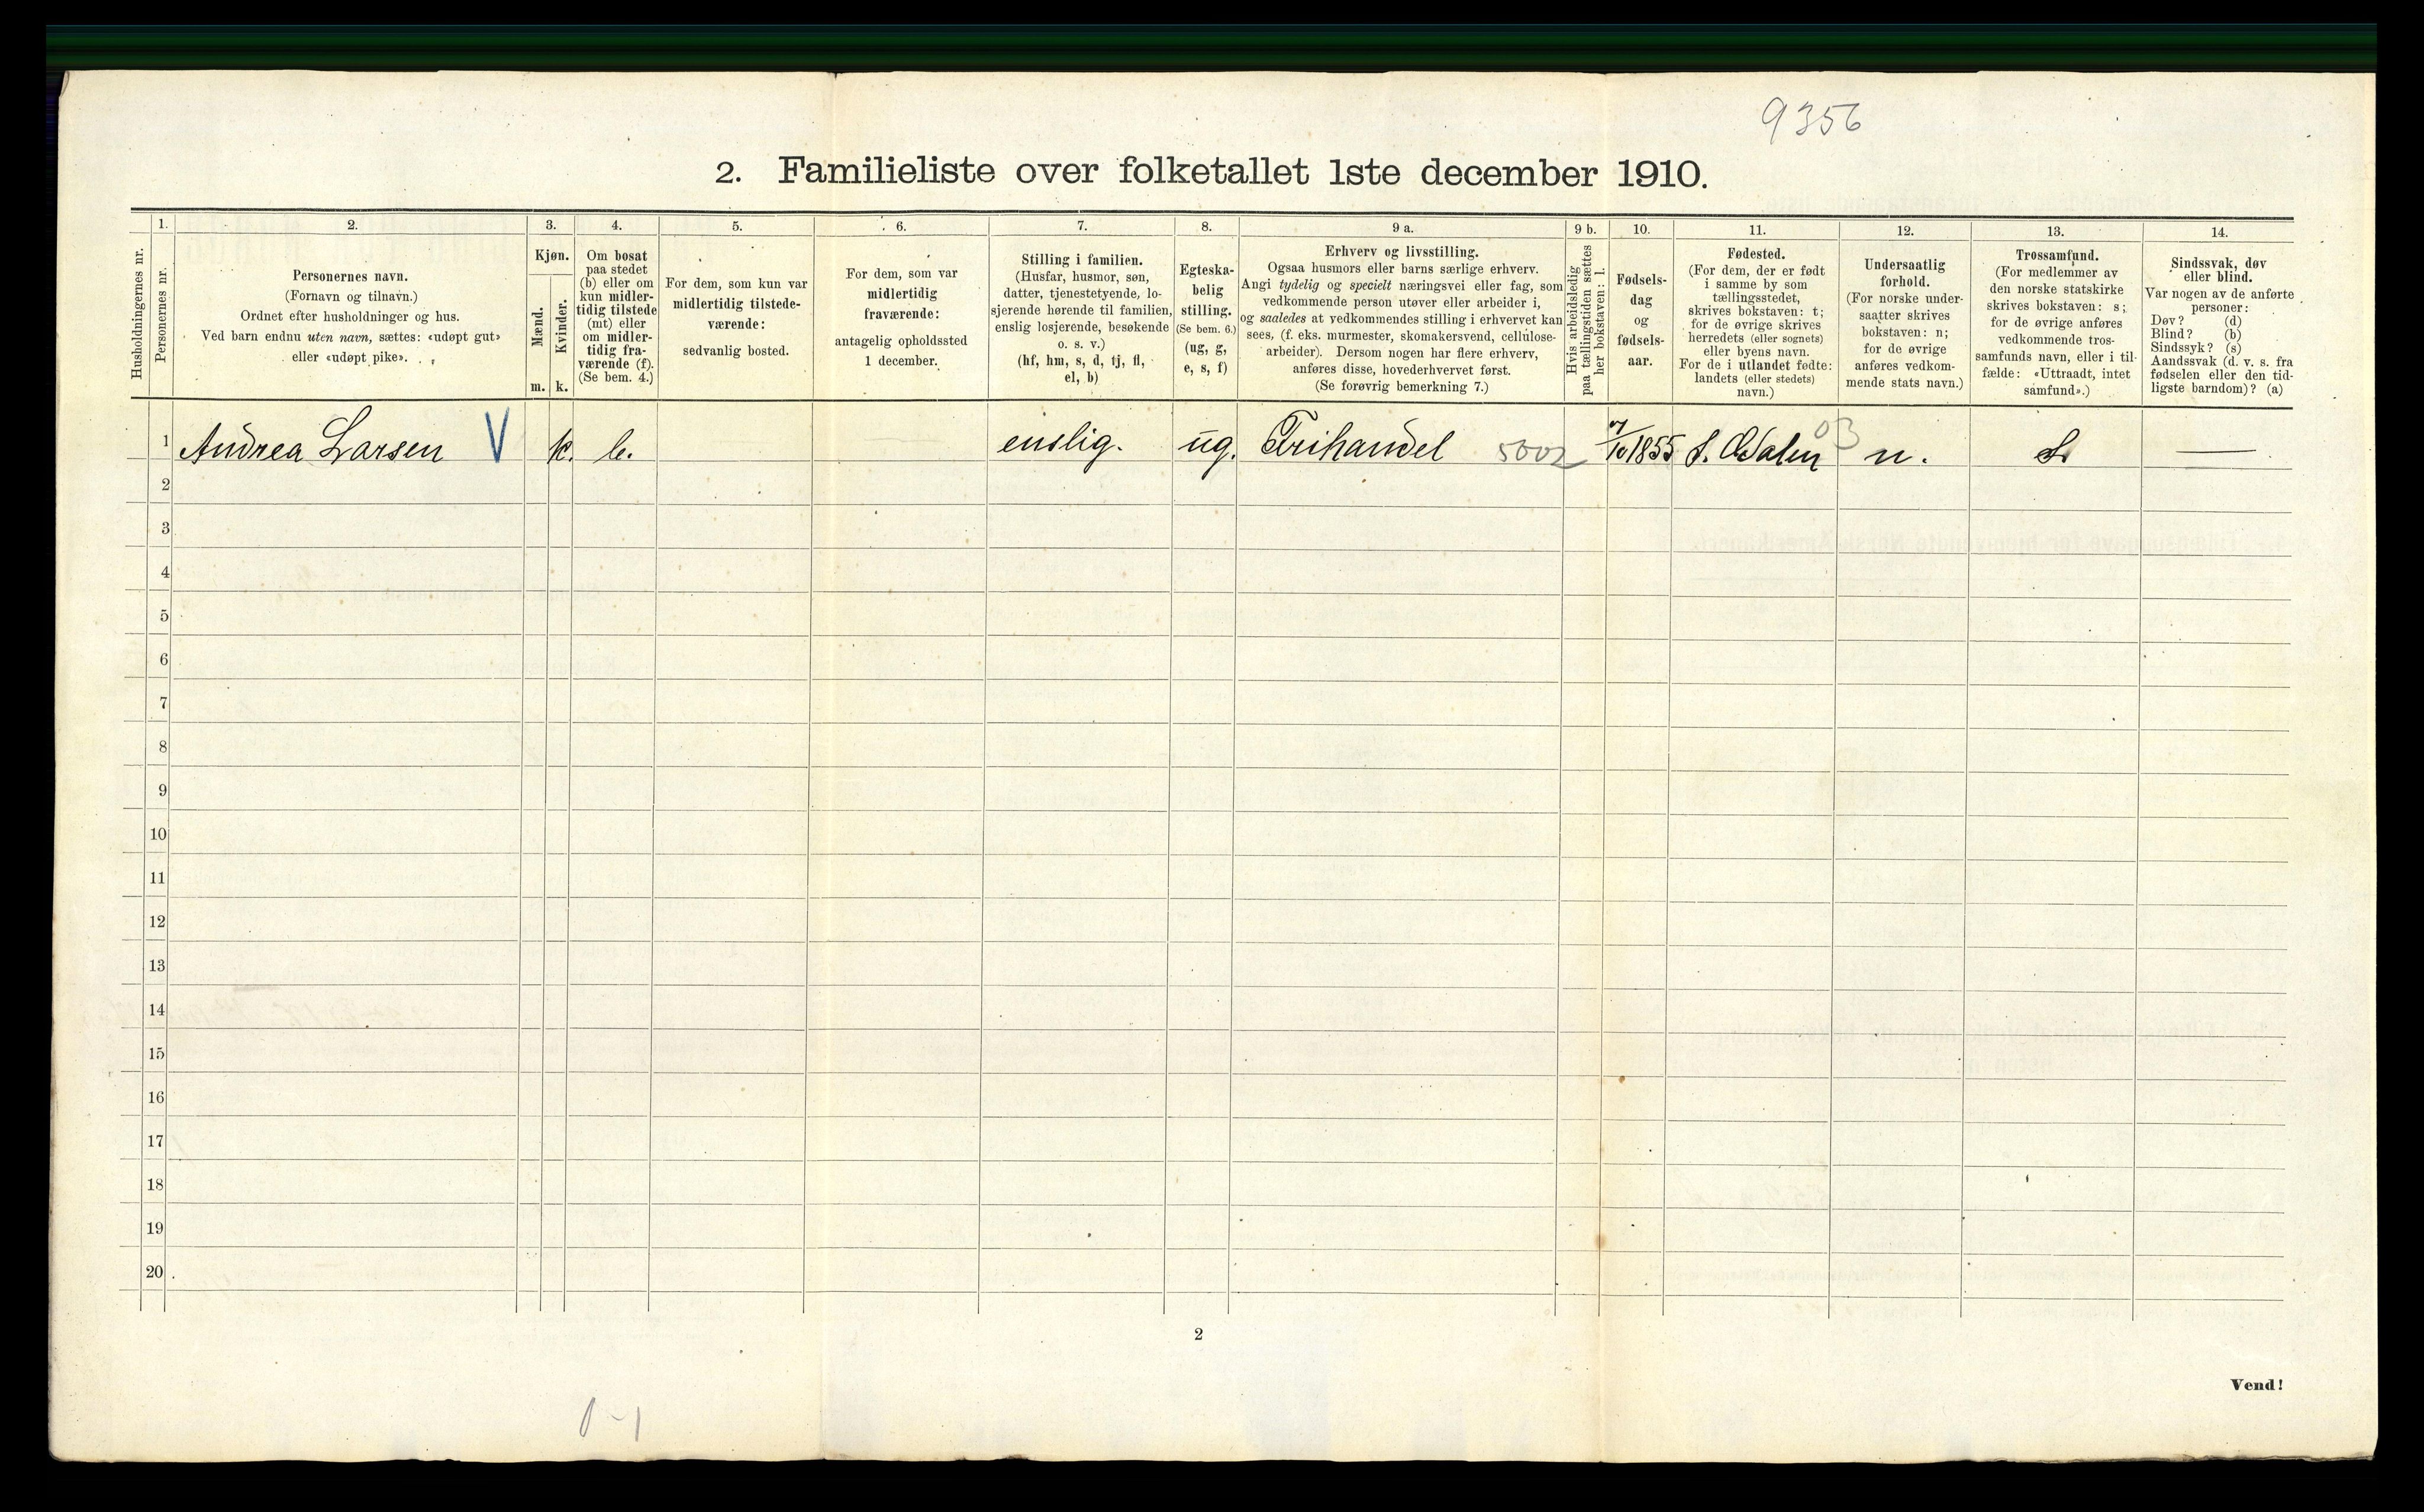 9356
2. Familieliste over folketallet 1ste december 1910.
Husholdningernes nr.
1.
Personernes nr.
2.
Personernes navn.
(Fornavn og tilnavn.)
Ordnet efter husholdninger og hus.
Ved barn endnu uten navn, sættes: «udøpt gut»
eller «udøpt pike».
3.
Kjøn.
Mænd.
m.
Kvinder.
k.
4.
Om bosat
paa stedet
(b) eller om
kun midler-
tidig tilstede
(mt) eller
om midler-
tidig fra-
værende (f).
(Se bem. 4.)
5.
For dem, som kun var
midlertidig tilstede-
værende:
sedvanlig bosted.
6.
For dem, som var
midlertidig
fraværende:
antagelig opholdssted
1 december.
7.
Stilling i familien.
(Husfar, husmor, søn,
datter, tjenestetyende, lo-
sjerende hørende til familien,
enslig losjerende, besøkende
o. s. v.)
(hf, hm, s, d, tj, fl,
el, b)
8.
Egteska-
belig
stilling.
(Se bem. 6.)
(ug, g,
e, s, f)
9 a.
Erhverv og livsstilling.
Ogsaa husmors eller barns særlige erhverv.
Angi tydelig og specielt næringsvei eller fag, som
vedkommende person utøver eller arbeider i,
og saaledes at vedkommendes stilling i erhvervet kan
sees, (f. eks. murmester, skomakersvend, cellulose-
arbeider). Dersom nogen har flere erhverv,
anføres disse, hovederhvervet først.
(Se forøvrig bemerkning 7.)
9 b.
Hvis arbeidsledig
paa tællingstiden sættes
her bokstaven: l.
10.
Fødsels-
dag
og
fødsels-
aar.
11.
Fødested.
(For dem, der er født
i samme by som
tællingsstedet,
skrives bokstaven: t;
for de øvrige skrives
herredets (eller sognets)
eller byens navn.
For de i utlandet fødte:
landets (eller stedets)
navn.)
12.
Undersaatlig
forhold.
(For norske under-
saatter skrives
bokstaven: n;
for de øvrige
anføres vedkom-
mende stats navn.)
13.
Trossamfund.
(For medlemmer av
den norske statskirke
skrives bokstaven: s;
for de øvrige anføres
vedkommende tros-
samfunds navn, eller i til-
fælde: «Uttraadt, intet
samfund».)
14.
Sindssvak, døv
eller blind.
Var nogen av de anførte
personer:
Døv? (d)
Blind? (b)
Sindssyk? (s)
Aandssvak (d. v. s. fra
fødselen eller den tid-
ligste barndom)? (a)
1 Andrea Larsen V k. b. enslig. ug. Frihandel 5002 7/10 1855 S. Odalen 03 n. S. —
2
3
4
5
6
7
8
9
10
11
12
13
14
15
16
17
18
19
20
2
Vend!
0-1